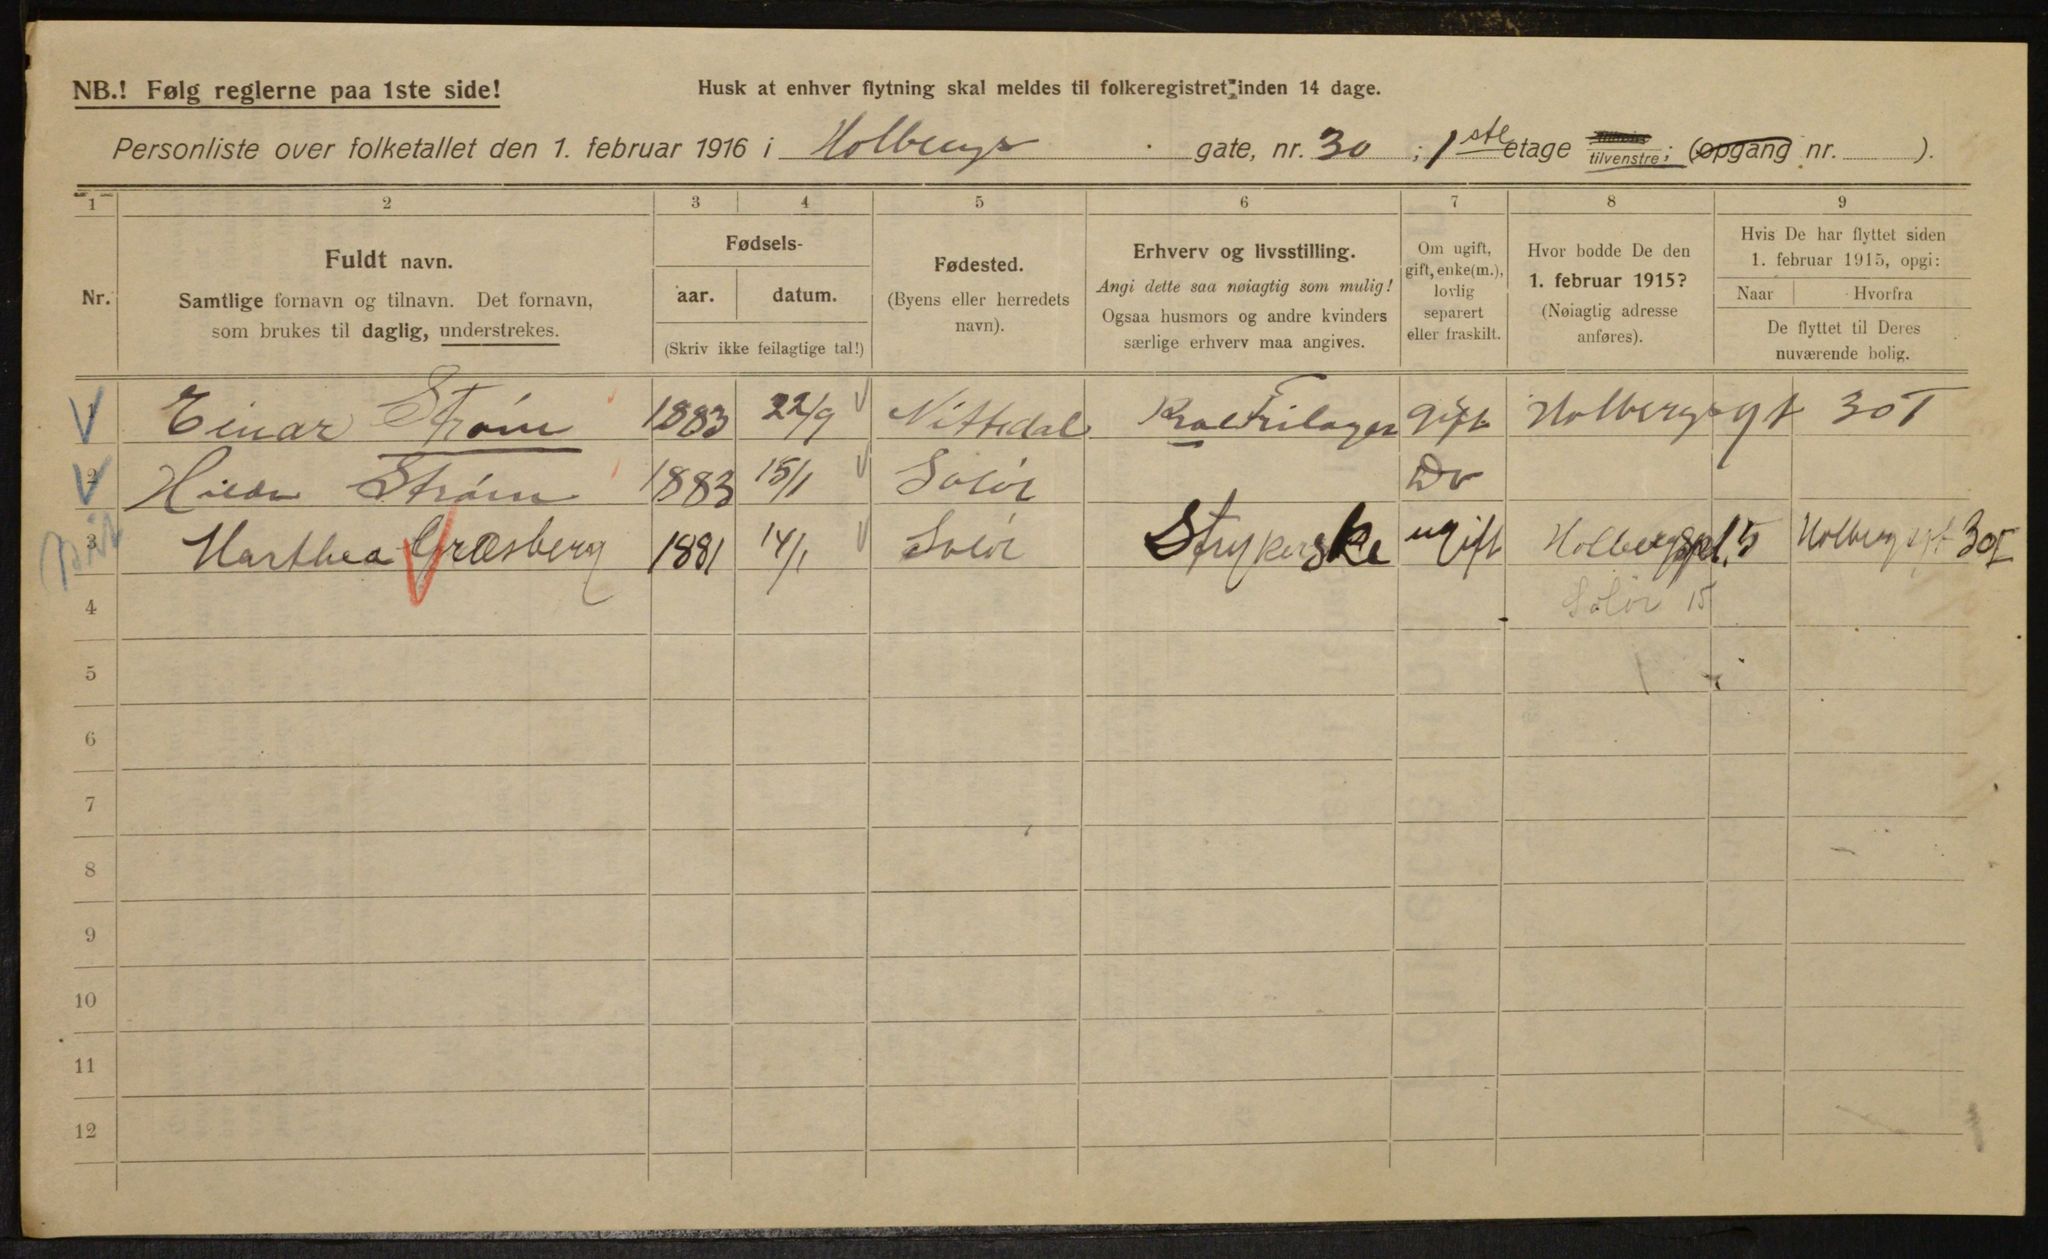 NB.! Følg reglerne paa 1ste side! Husk at enhver flytning skal meldes til folkeregistret inden 14 dage.
Personliste over folketallet den 1. februar 1916 i Holbergs gate, nr. 30 ; 1ste etage tilvenstre; (opgang nr. ).
1 2 3 4 5 6 7 8 9
Nr.
Fuldt navn.
Samtlige fornavn og tilnavn. Det fornavn,
som brukes til daglig, understrekes.
Fødsels-
aar. datum.
(Skriv ikke feilagtige tal!)
Fødested.
(Byens eller herredets
navn).
Erhverv og livsstilling.
Angi dette saa nøiagtig som mulig!
Ogsaa husmors og andre kvinders
særlige erhverv maa angives.
Om ugift,
gift, enke(m.),
lovlig
separert
eller fraskilt.
Hvor bodde De den
1. februar 1915?
(Nøiagtig adresse
anføres).
Hvis De har flyttet siden
1. februar 1915, opgi:
Naar Hvorfra
De flyttet til Deres
nuværende bolig.
1 Einar Strøm 1883 22/9 Nittedal gift Holbergsgt 30 I
2 Hilda Strøm 1883 15/1 Solør Do
3 Marthea Græsberg 1881 14/1 Solør Strykerske ugift Holbergspl. 5 Holbergsgt 30 I
4 Solør 15
5
6
7
8
9
10
11
12